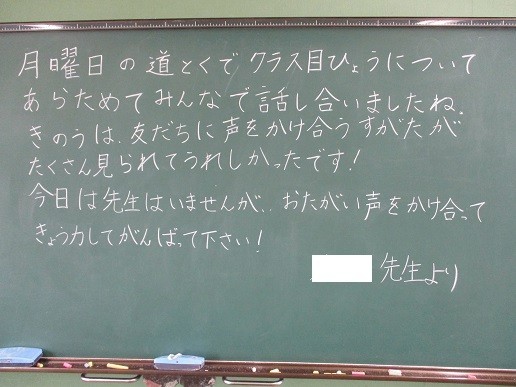 月曜日の道とくでクラス目ひょうについて
あらためてみんなで話し合いましたね。
きのうは、友だちに声をかけ合うすがたが
たくさん見られてうれしかったです!
今日は先生はいませんが、おたがい声をかけ合って
きょう力してがんばって下さい!
先生より